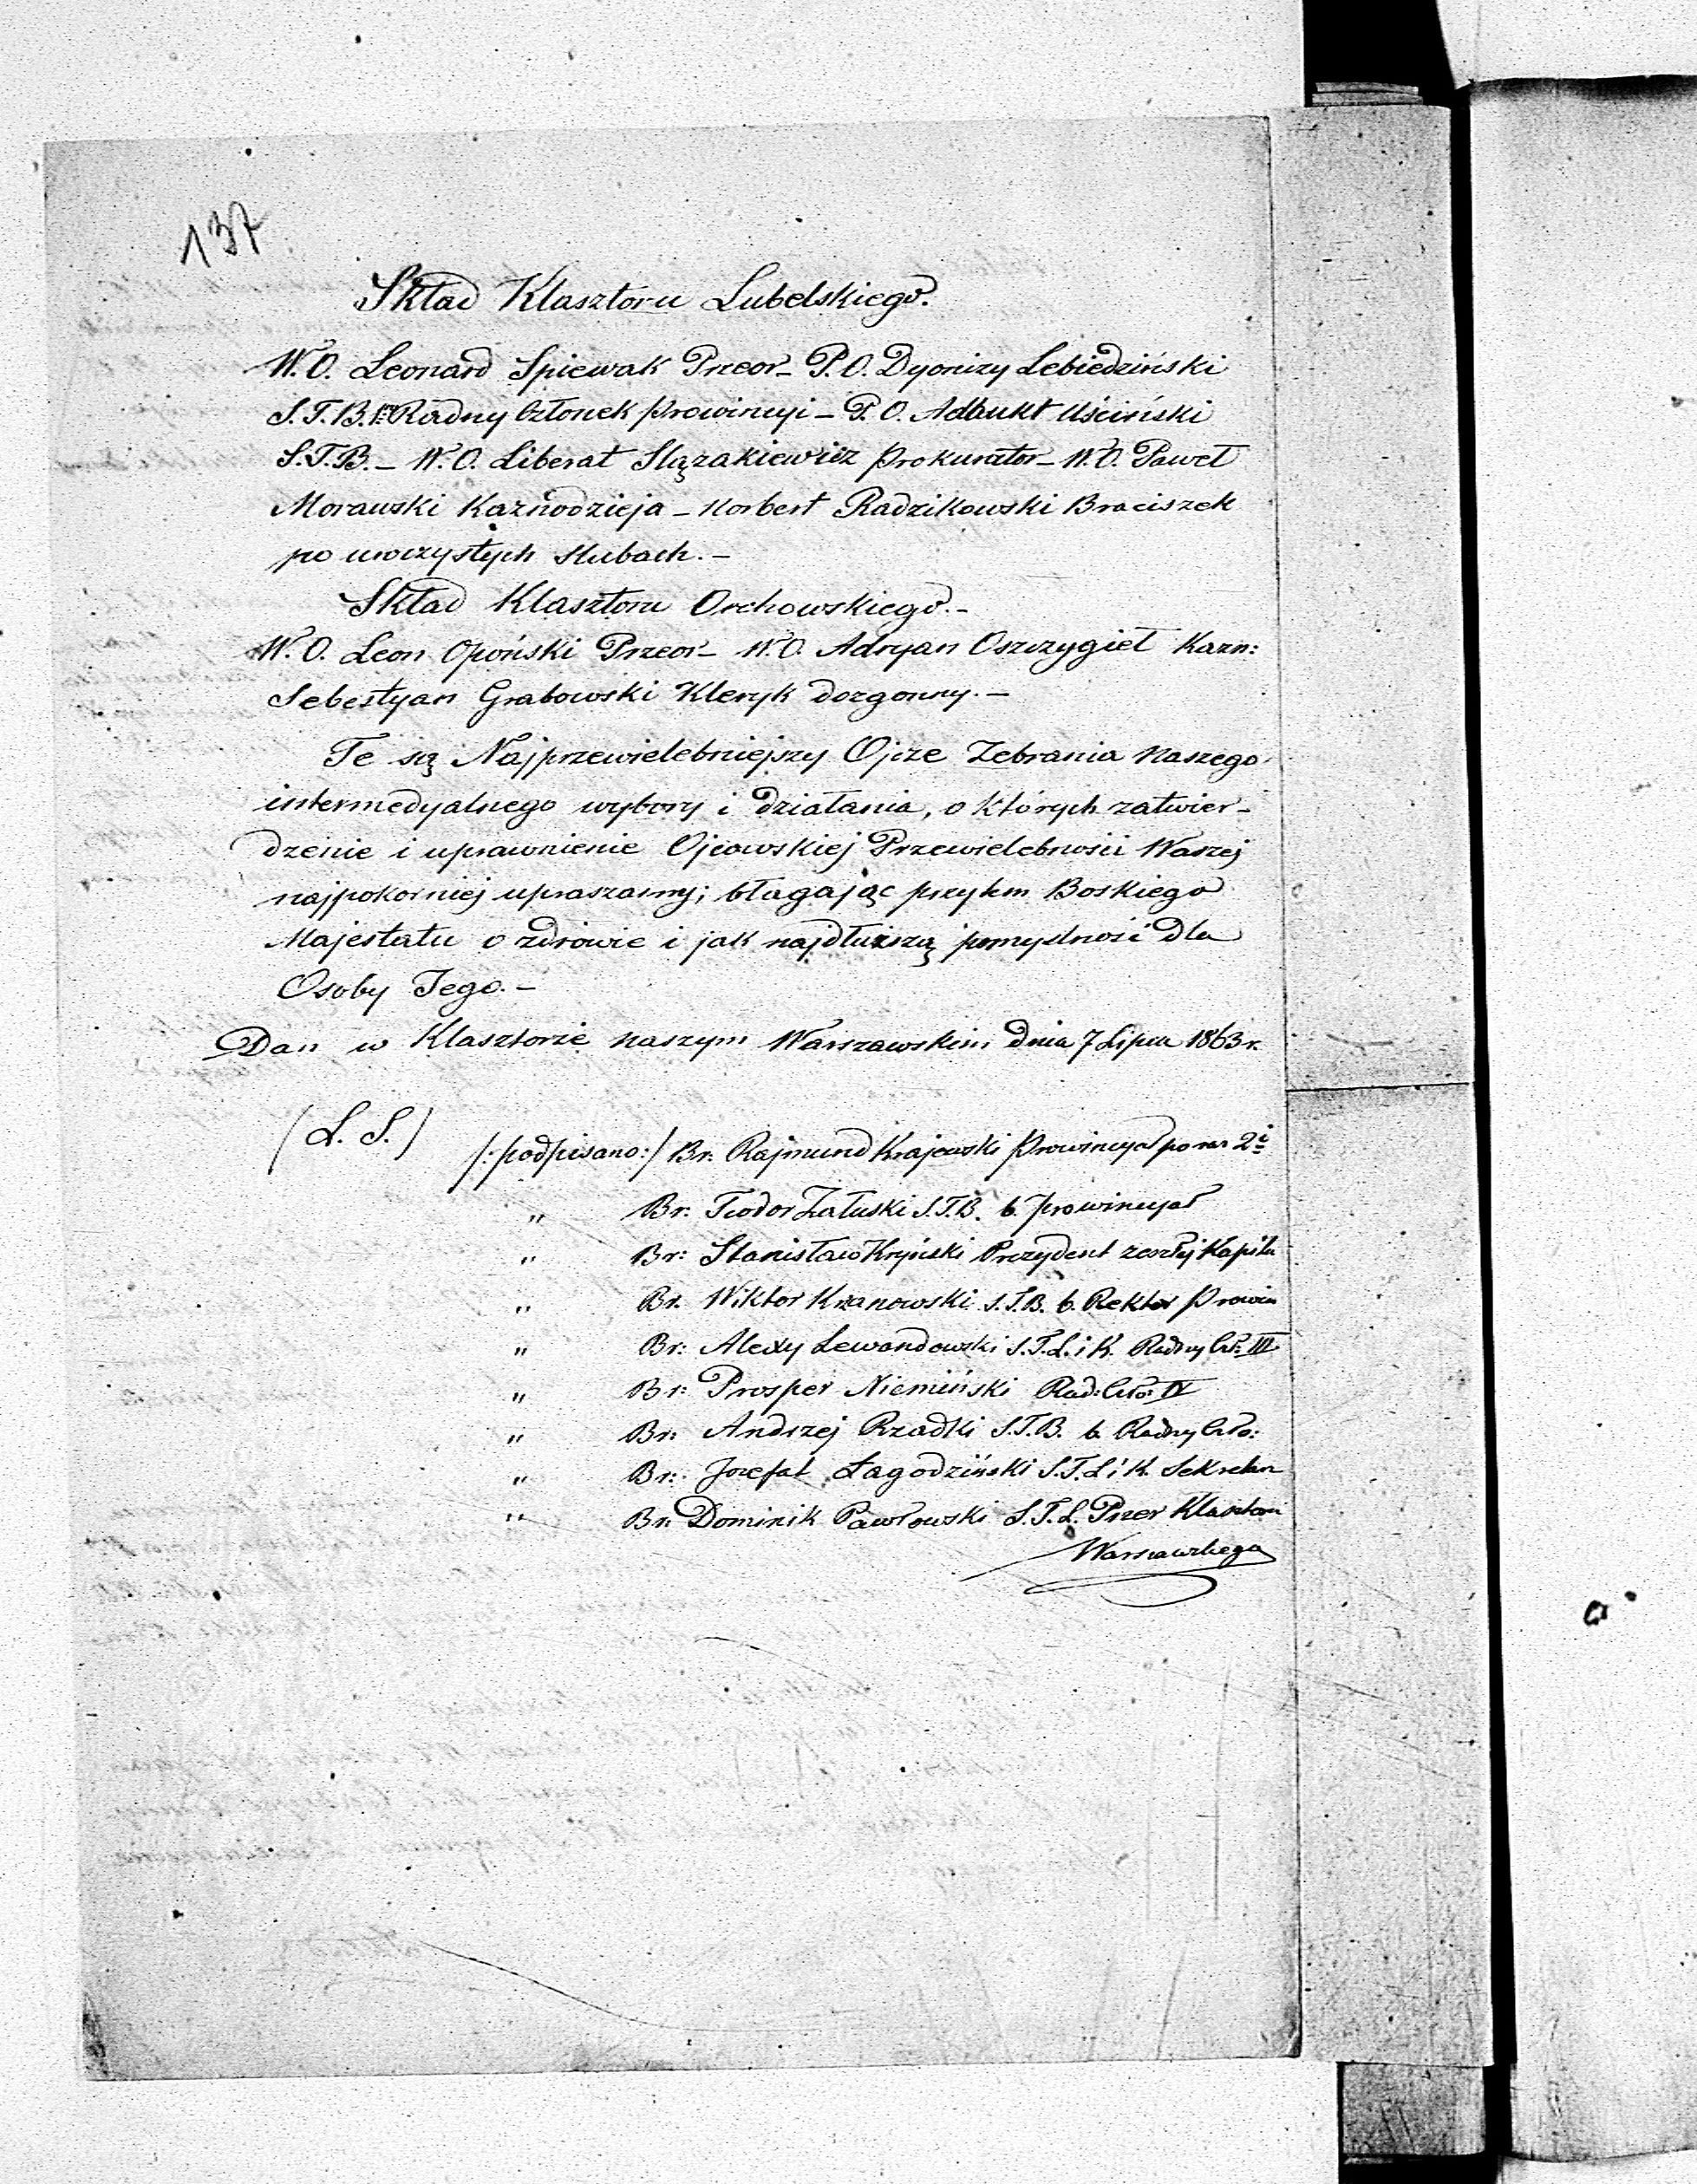 137
Skład Klasztoru Lubelskiego.
W. O. Leonard Spiewak Przeor – P. O. Dyonizy Lebiedziński
S. T. B. Radny Członek prowincyi – P. O. Adaukt Uściński
S. T. B. – W. O. Liberat Slązakiewicz prokurator – W. O. Paweł
Morawski Kaznodzieja – Norbert Radzikowski Braciszek
po uroczystych slubach. –
Skład Klasztoru Orchowskiego. –
W. O. Leon Opoński Przeor – W. O. Adryan Oszczygieł Kazn:
Sebestyan Grabowski Kleryk dozgonny. –
Te są Najprzewielebniejszy Ojcze Zebrania naszego
intermedyalnego wybory i działania, o których zatwier-
dzenie i uprawnienie Ojcowskiej Przewielebności Waszej
najpokorniej upraszamy; błagając przytem Boskiego
Majestatu o zdrowie i jak najdłuższą pomyslność dla
Osoby Jego. –
Dan w Klasztorze naszym Warszawskim dnia 7 Lipca 1863 r.
(L. S.)
/:podpisano:/ Br. Rajmund Krajewski prowincyał po raz 2i
" Br. Teodor Załuski S.T.B. b. prowincyał
" Br: Stanisław Kryński Prezydent zeszły Kapitu
" Br. Wiktor Krzanowski S.T.B. b. Rektor prowin
" Br: Alexy Lewandowski S.T.L. i K. Radny Cło: III
" Br: Prosper Niemiński Rad: Cło: IV
" Br: Andrzej Rzadki S.T.B. b. Radny Cło:
" Br: Jozefat Łagodziński S.T.L. i K. Sekretarz
" Br. Dominik Pawłowski S.T.L. Przeor Klasztoru
Warszawskiego